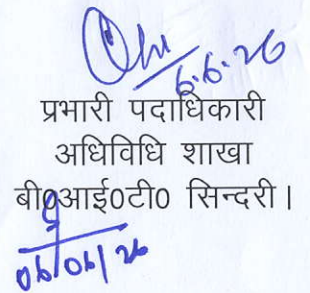 6.6.26
प्रभारी पदाधिकारी
अधिविधि शाखा
बी0आई0टी0 सिन्दरी।
06/06/26